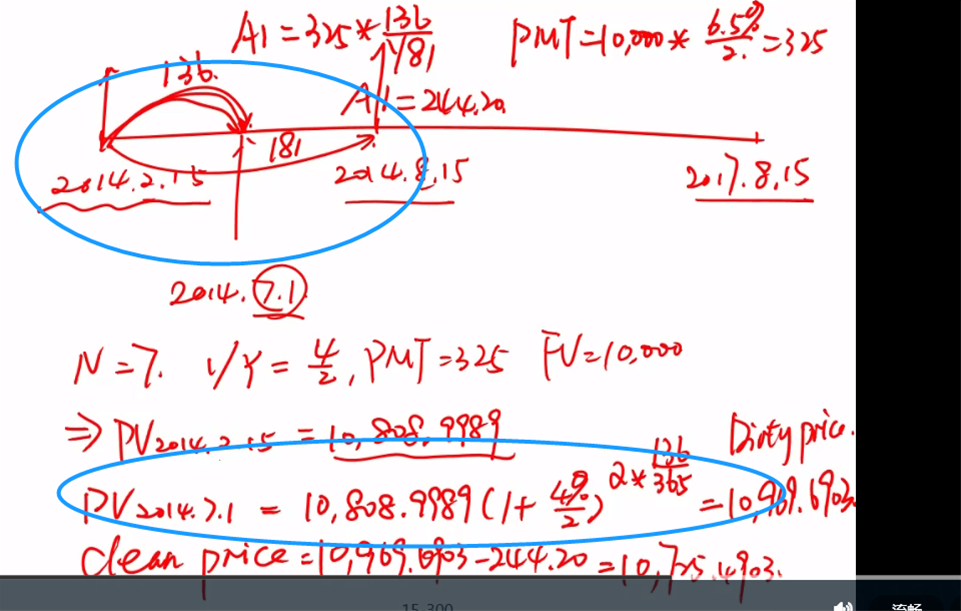 AI = 325 * 136/181
PMT = 10,000 * 6.5%/2 = 325
136.
AI = 244.20
181
2014.2.15
2014.8.15
2017.8.15
2014.7.1
N = 7. I/Y = 4/2, PMT = 325 FV = 10,000
⇒ PV2014.2.15 = 10,808.9989
Dirty price.
PV2014.7.1 = 10,808.9989 (1 + 4%/2)^2*136/365 = 10,969.6903
clean price = 10,969.6903 - 244.20 = 10,725.4903.
15,300
流畅